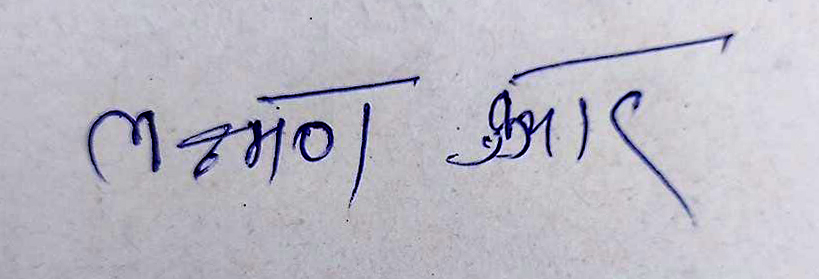 लक्ष्मण कुमार